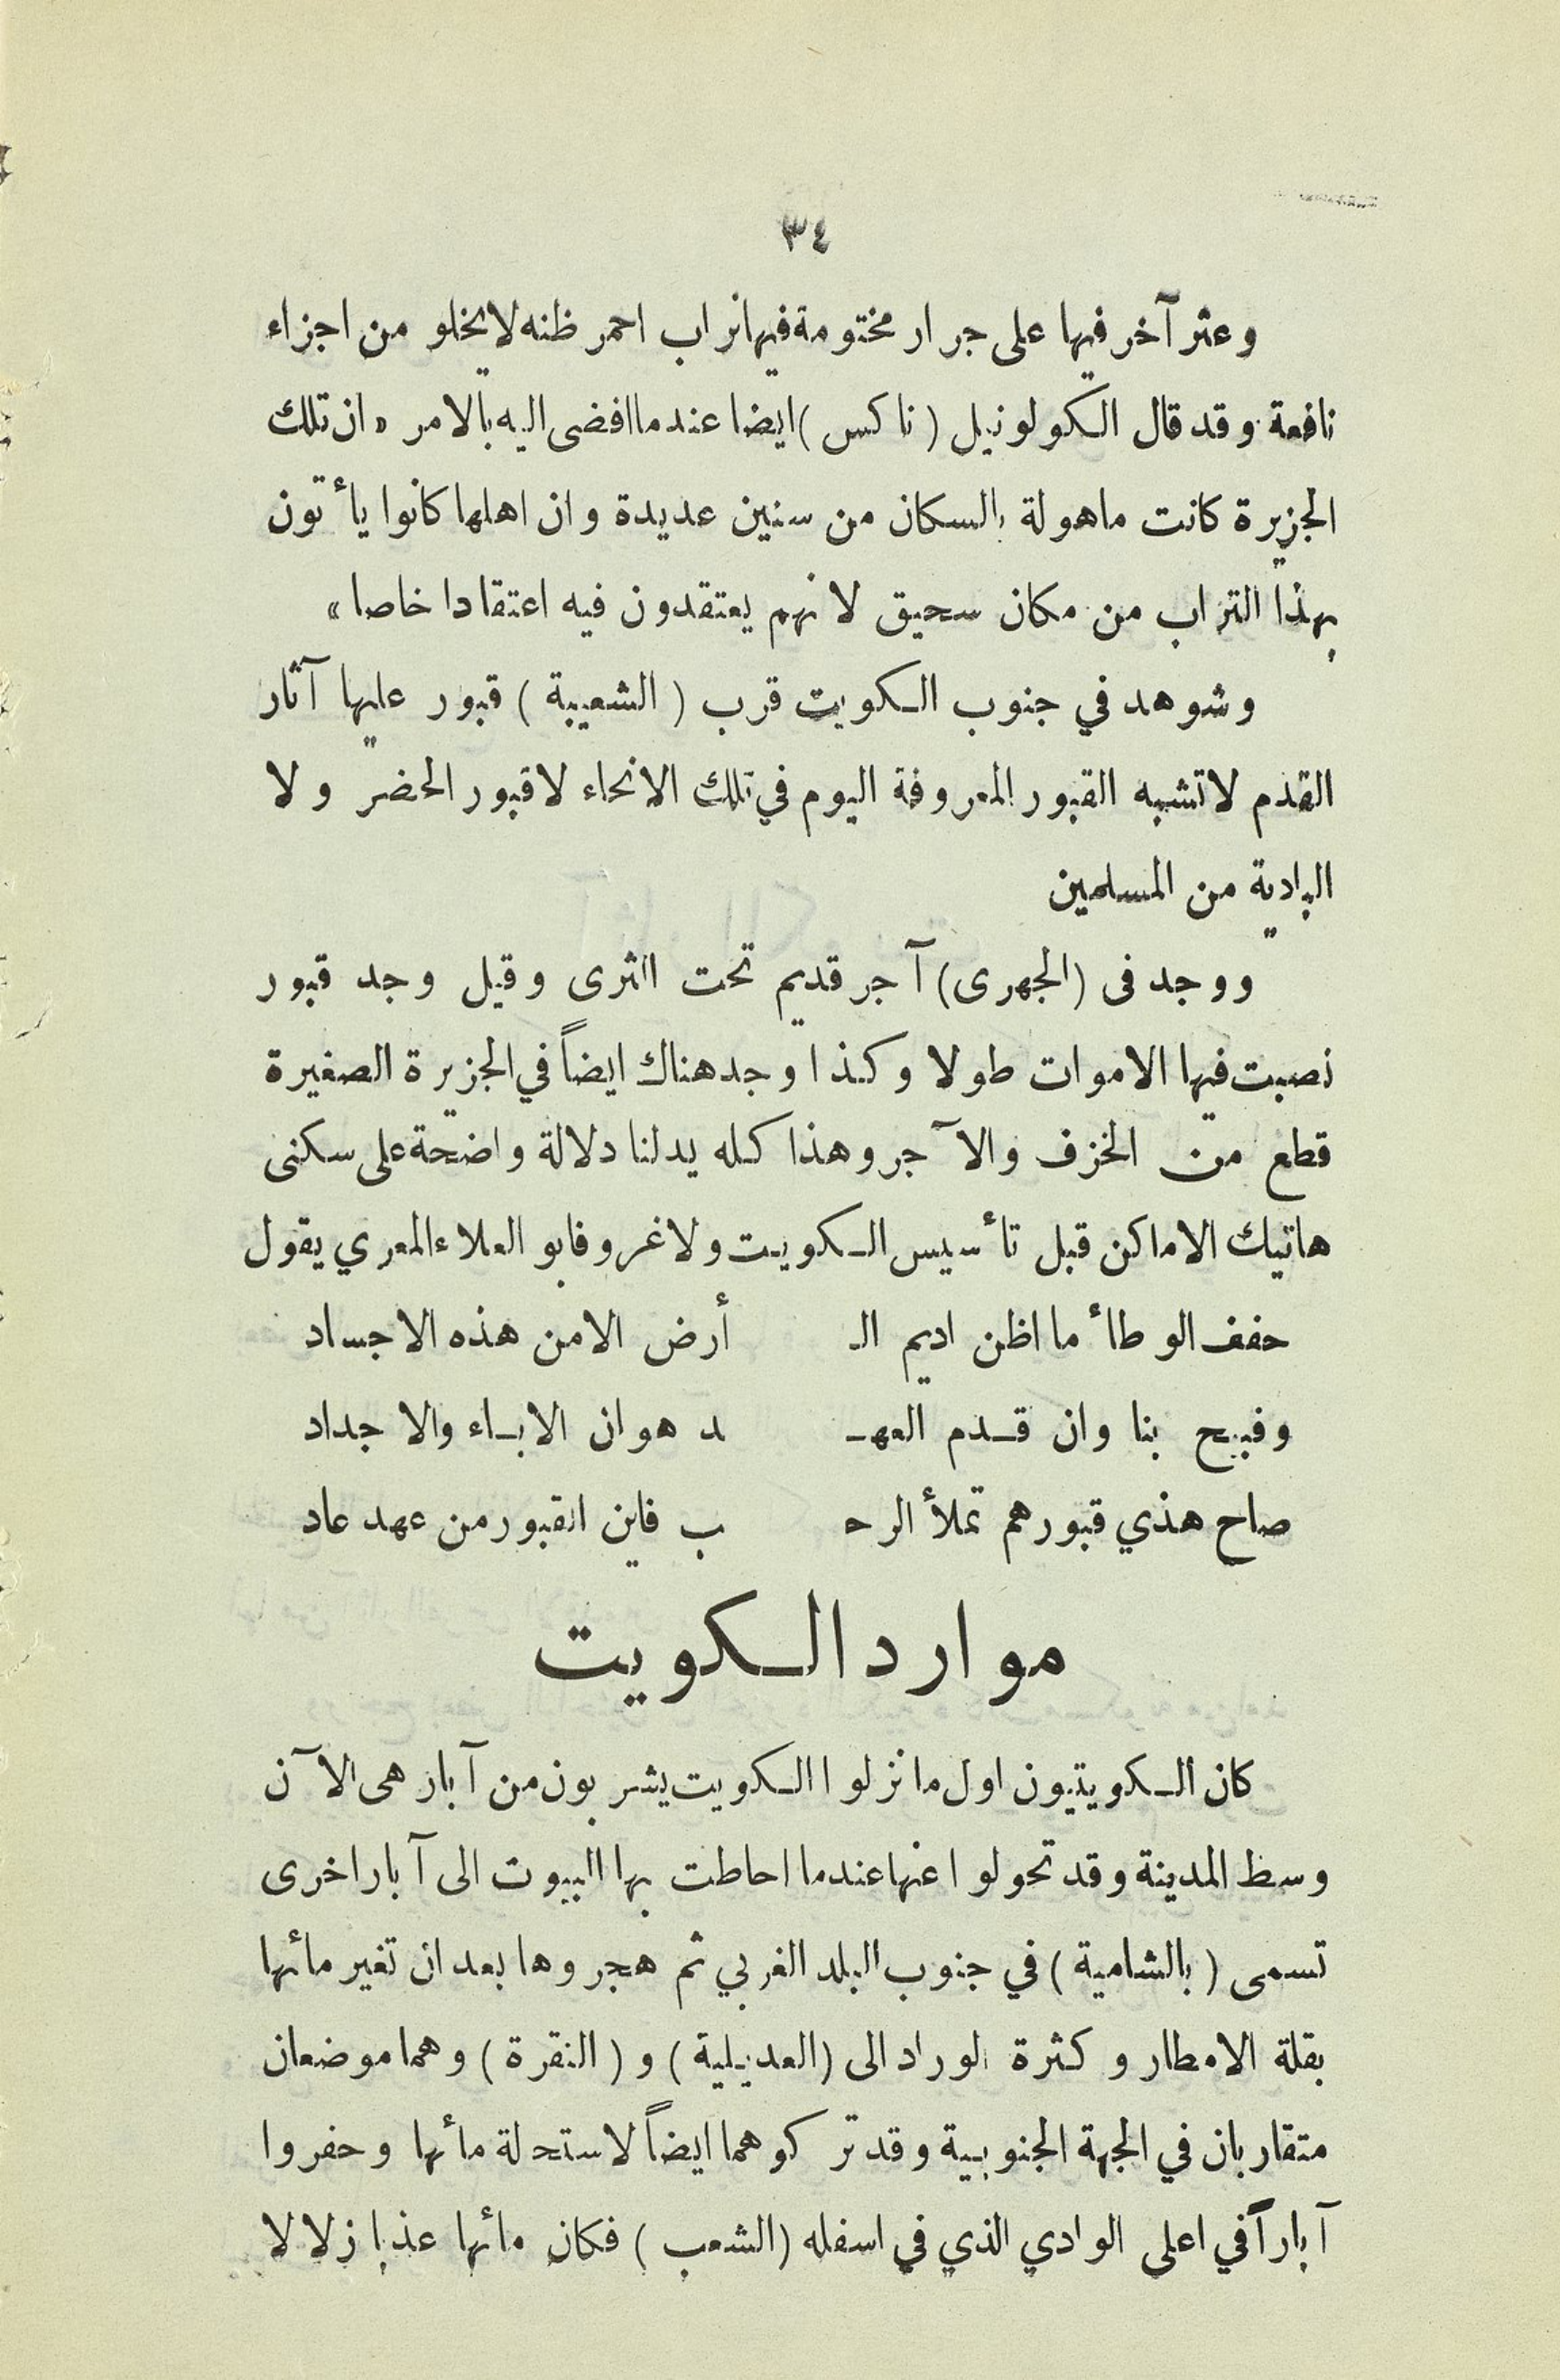 ٣٤
وعثر آخر فيها على جرار مختومة فيها تراب احمر ظنه لا يخلو من اجزاء
نافعة وقد قال الكولونيل (ناكس) ايضا عندما افضى اليه بالامر «ان تلك
الجزيرة كانت ماهولة بالسكان من سنين عديدة وان اهلها كانوا يأتون
بهذا التراب من مكان سحيق لانهم يعتقدون فيه اعتقادا خاصا»
وشوهد في جنوب الكويت قرب (الشعيبة) قبور عليها آثار
القدم لا تشبه القبور المعروفة اليوم في تلك الانحاء لا قبور الحضر ولا
البادية من المسلمين
ووجد فى (الجهرى) آجر قديم تحت الثرى وقيل وجد قبور
نصبت فيها الاموات طولا وكذا وجد هناك ايضاً في الجزيرة الصغيرة
قطع من الخزف والآجر وهذا كله يدلنا دلالة واضحة على سكنى
هاتيك الاماكن قبل تأسيس الكويت ولاغرو فابو العلاء المعري يقول
حفف الوطأ ما اظن اديم الـ أرض الامن هذه الاجساد
وقبيح بنا وان قدم العهـ ـد هوان الاباء والاجداد
صاح هذي قبورهم تملأ الرحـ ـب فاين القبور من عهد عاد
موارد الكويت
كان الكويتيون اول ما نزلوا الكويت يشربون من آبار هى الآن
وسط المدينة وقد تحولوا عنها عندما احاطت بها البيوت الى آبار اخرى
تسمى (بالشامية) في جنوب البلد الغربي ثم هجروها بعد ان تغير مائها
بقلة الامطار وكثرة الوراد الى (العديلية) و (النقرة) وهما موضعان
متقاربان في الجهة الجنوبية وقد تركوهما ايضاً لاستحلة مائها وحفروا
آباراً في اعلى الوادي الذي في اسفله (الشعب) فكان مائها عذبا زلالا